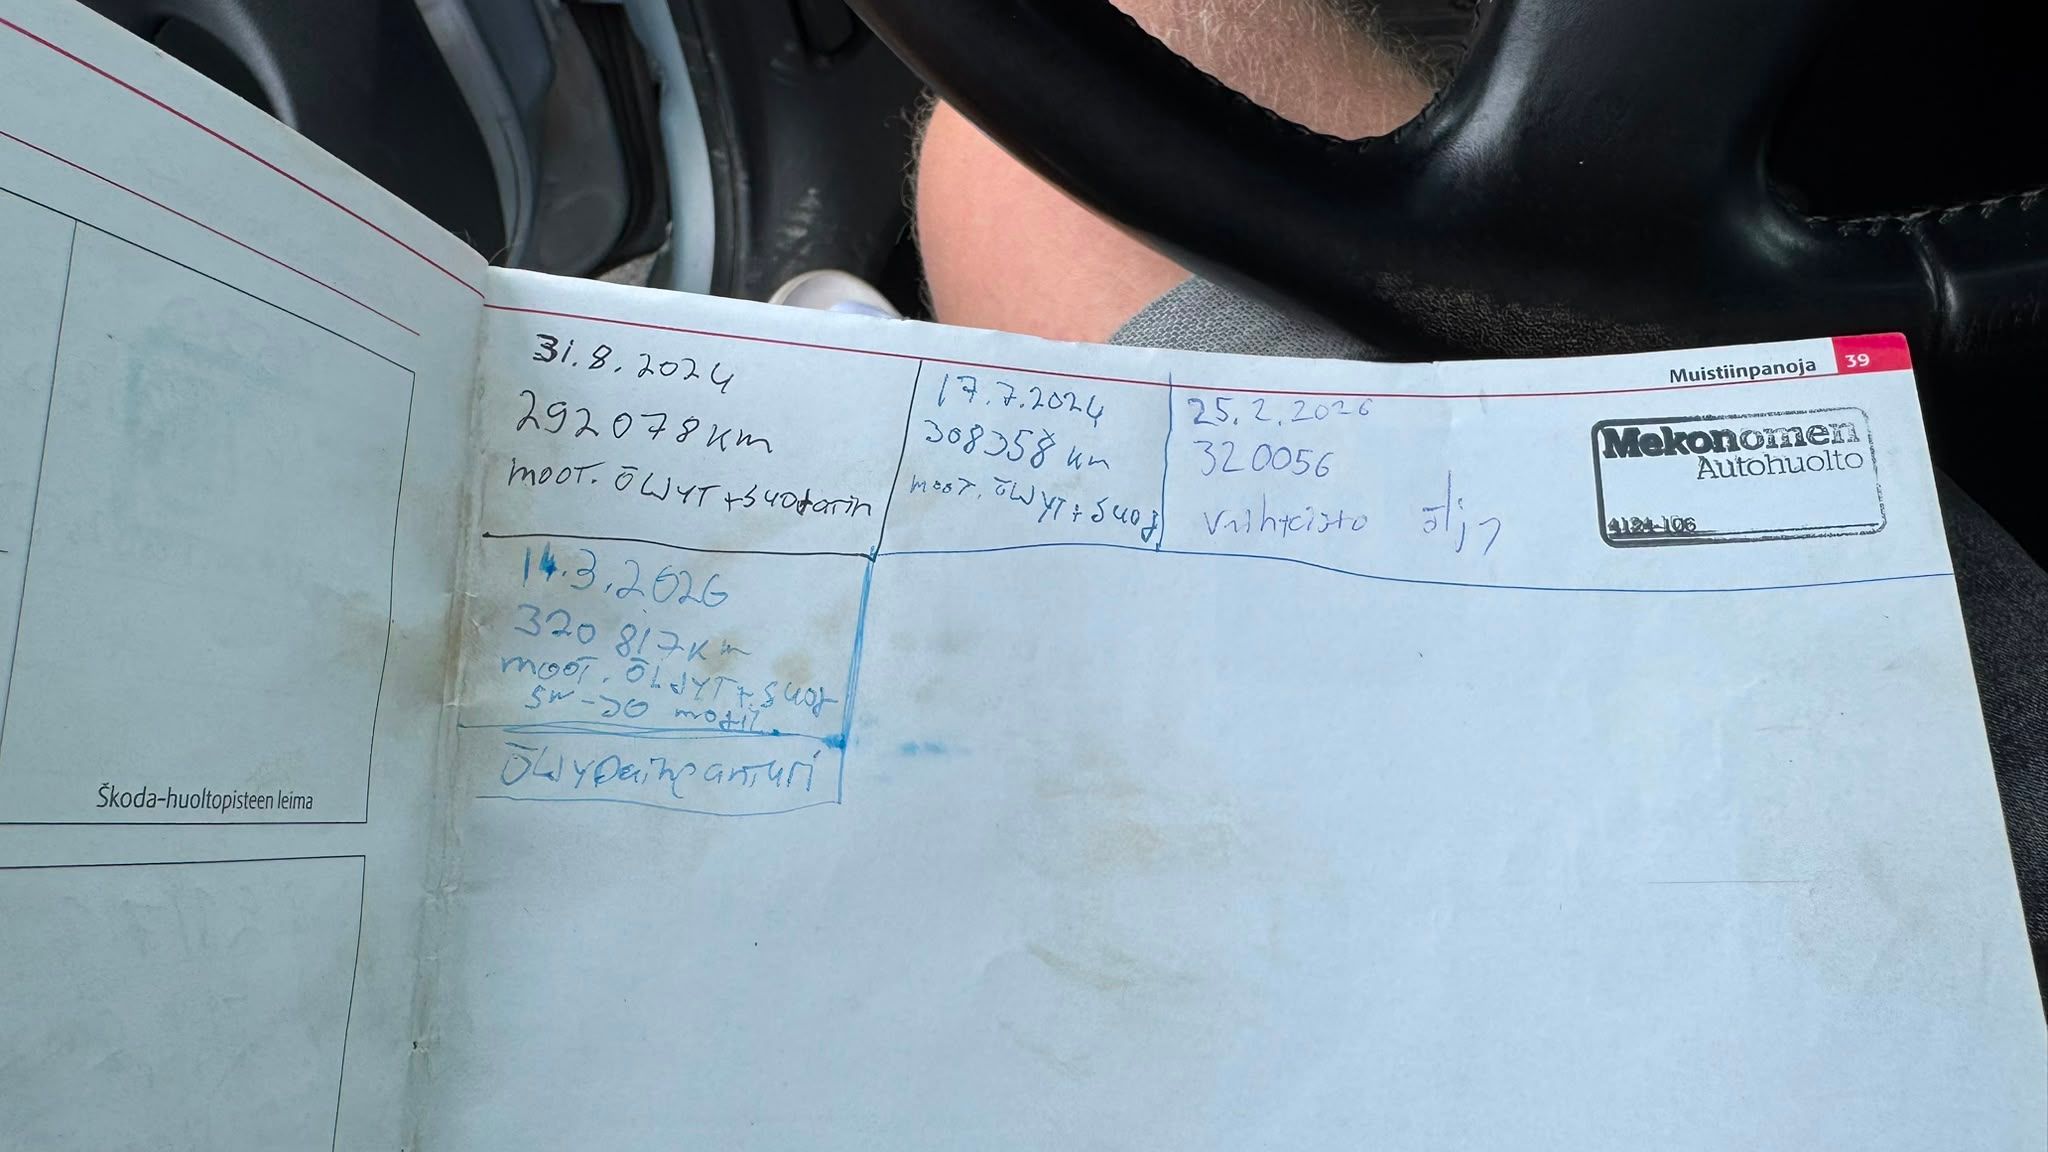 Muistiinpanoja 39
31.8.2024
292078 km
moot. öljyt + suodatin
17.7.2024
308358 km
moot. öljyt + suod
25.2.2026
320056
Vaihteisto öljy
Mekonomen
Autohuolto
4124-106
14.3.2026
320 817 km
moot. öljyt + suod
5W-30
öljynpaineanturi
Škoda-huoltopisteen leima